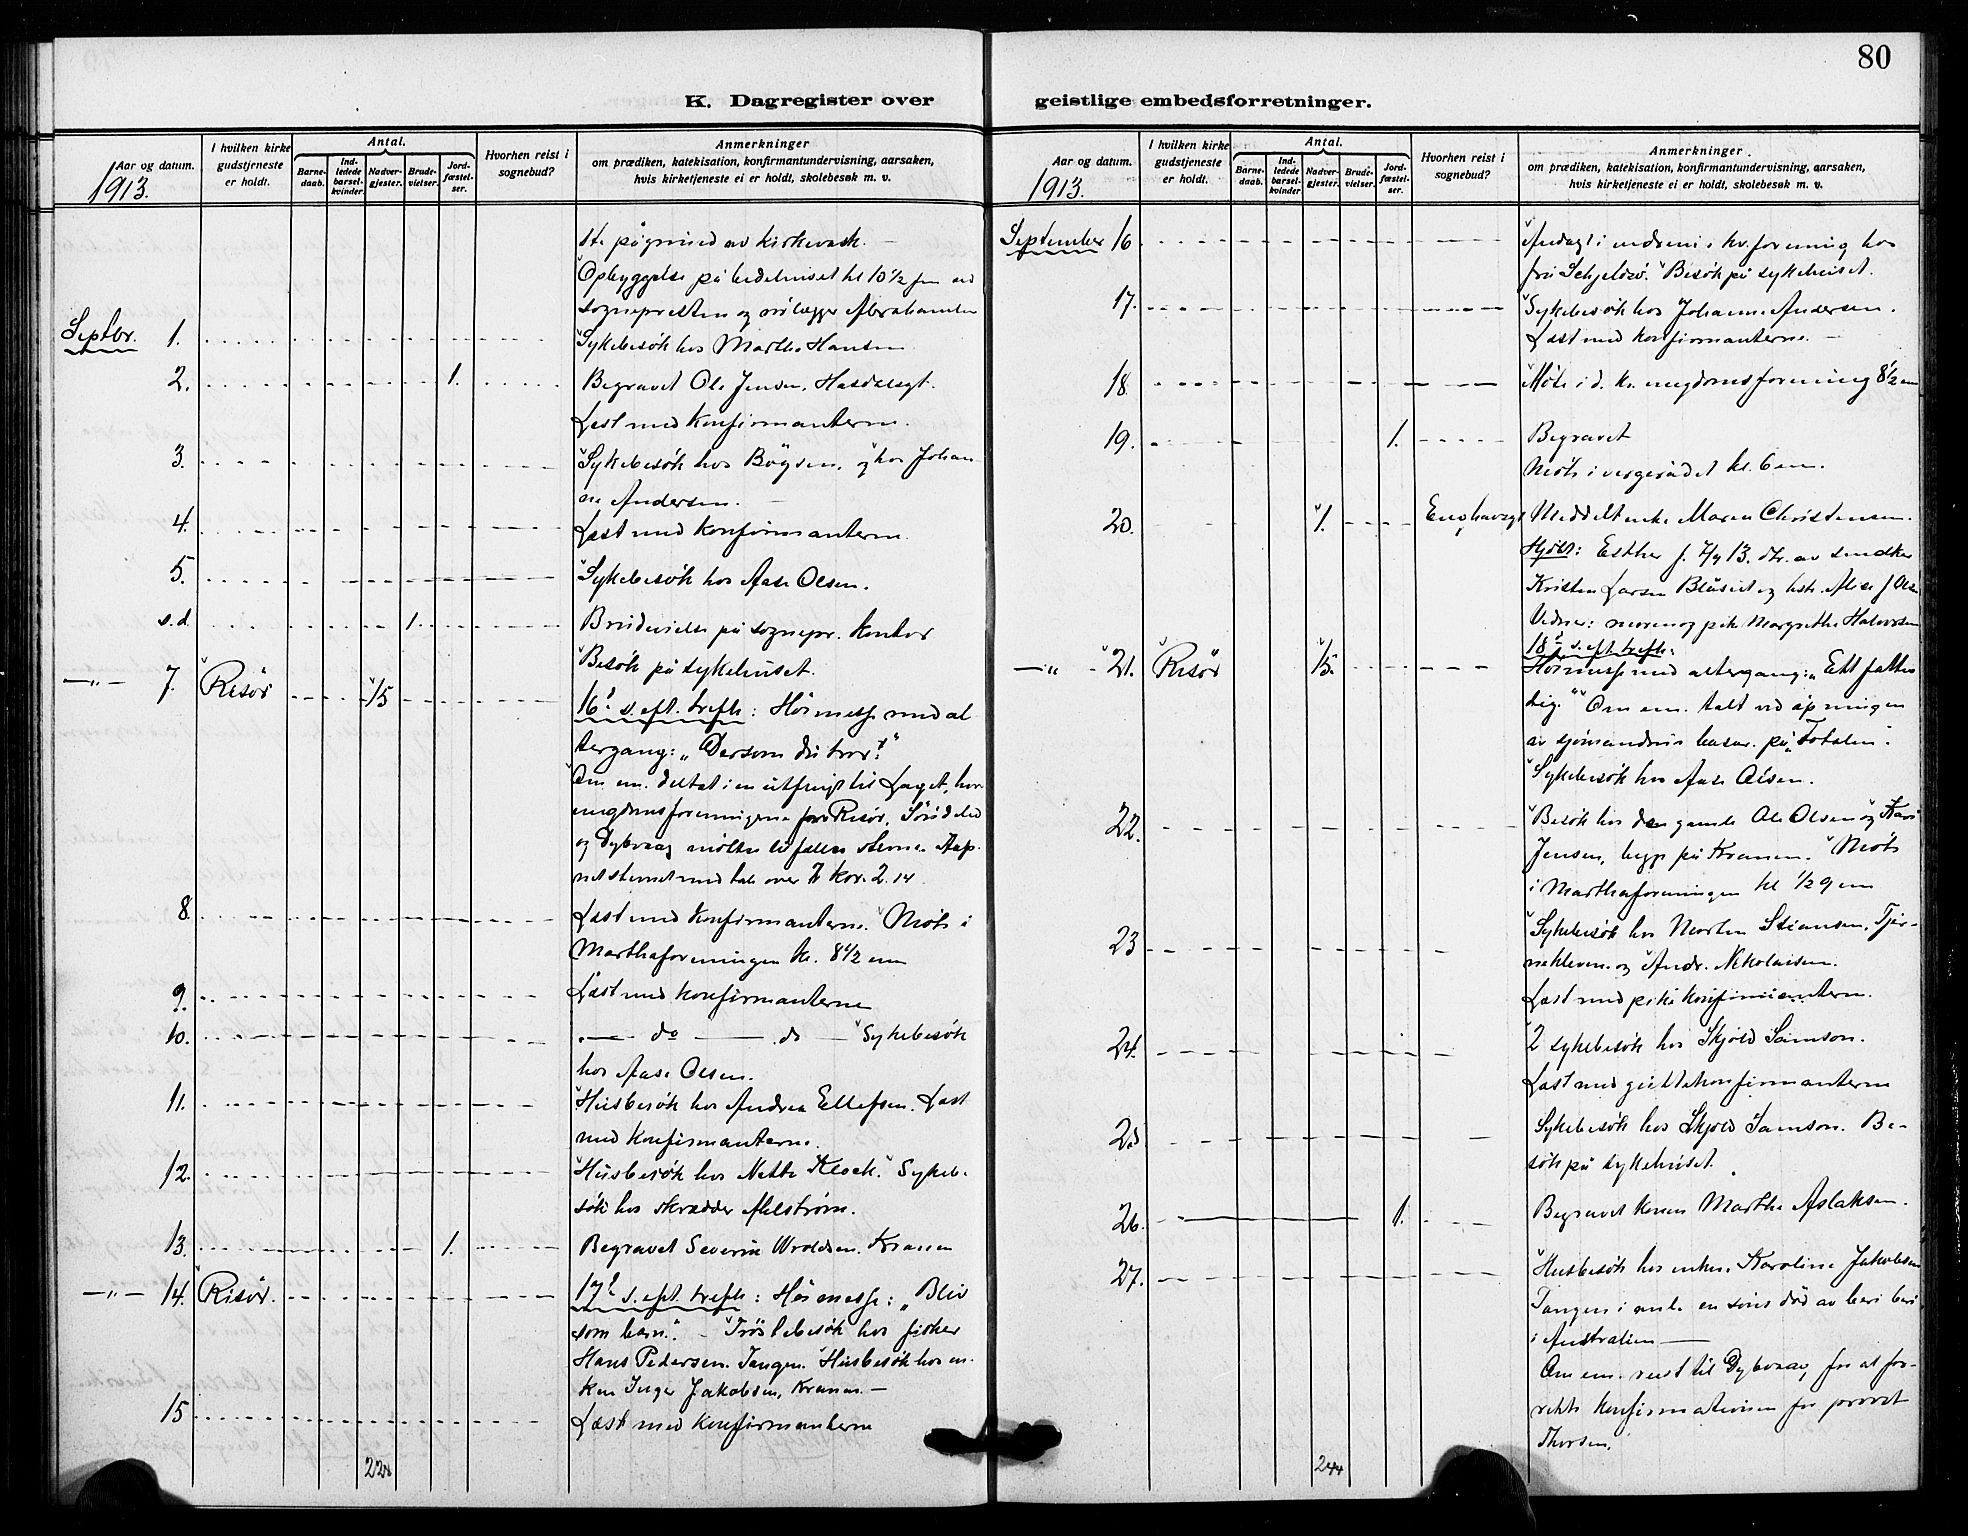 80
K. Dagregister over geistlige embedsforretninger.
Aar og datum.
1913.
I hvilken kirke gudstjeneste er holdt.
Antal.
Barnedaab.
Indledede barselkvinder.
Nadvergjester.
Brudevielser.
Jordfæstelser.
Hvorhen reist i sognebud?
Anmerkninger
om prædiken, katekisation, konfirmantundervisning, aarsaken,
hvis kirketjeneste ei er holdt, skolebesøk m. v.
ste på grund av kirkevask. –
Opbyggelse på bedehuset kl 10 1/2 fm ved
sognepresten og Abrahamsen
Septbr. 1. Sykebesök hos Marthe Hansen
2. 1. Begravet Ole Jensen, Hasdalsgt.
Læst med konfirmanterne.
3. Sykebesök hos Bögsen, og hos Johan
ne Andersen. –
4. Læst med konfirmanterne.
5. Sykebesök hos Aase Olsen.
s.d. 1. Brudevielse på sognepr. kontor
Besök på sykehuset.
—„— 7. Risör 15
16. s. eft. trefh: Höimesse med al
tergang: „Dersom du tror!"
Om em. deltat i en utflugt til Laget, hvor
ungdomsforeningene fra Risör, Söndeled
og Dybvaag möttes til fælles stevne. Aap-
net stevnet med tale over Kor. 2. 14
8. Læst med konfirmanterne. Möte i
Marthaforeningen kl. 8 1/2 em
9. Læst med konfirmanterne
10. — do — do — Sykebesök
hos Aase Olsen.
11. Husbesök hos Andrea Ellefsen. Læst
med konfirmanterne.
12. Husbesök hos Nette Klock. Sykeb-
sök hos skrædder Ahlström.
13. 1. Begravet Severin Wroldsen. Kranen
—„— 14. Risör.
17. s. eft. trefh: Höimesse: „Bliv
som barn". – Tröstebesök hos fisker
Hans Pedersen. Tangen. Husbesök hos en-
ken Inger Jakobsen, Kranen. –
15 Læst med konfirmanterne
228
Aar og datum.
1913.
I hvilken kirke gudstjeneste er holdt.
Antal.
Barnedaab.
Indledede barselkvinder.
Nadvergjester.
Brudevielser.
Jordfæstelser.
Hvorhen reist i sognebud?
Anmerkninger
om prædiken, katekisation, konfirmantundervisning, aarsaken,
hvis kirketjeneste ei er holdt, skolebesøk m. v.
September 16. Andagt i kv. forening hos
fru Besök på sykehuset.
17. Sykebesök hos Johanne Andersen.
Læst med konfirmanterne. –
18. Möte i d. kr. ungdomsforening 8 1/2 em
19. 1. Begravet
Möte i vergerådet kl. 6 em.
20. 1. Enghavegt Meddelt enke Maren Christensen.
Hjdbt: Esther f. 7/9 13. dtr. av snedker
Kristen Larsen Blåsut og hstr. f Olsen
Vidner: moren og pike Margrethe Halvorsen
18. s. eft. trefh:
—„— 21. Risör 15. Höimesse med altergang: „Ett fattes
dig." Om em. talt ved åpningen
av sjömandens basar på „Totalen".
Sykebesök hos Aase Olsen.
22. Besök hos den gamle Ole Olsen og
Jensen, begge på Kranen. Möte
i Marthaforeningen kl 1/2 9 em
23 Sykebesök hos Morten Stiansen, Tjær-
nekleven og Andr. Nikolaisen.
Læst med pikekonfirmanterne.
24. 2 sykebesök hos Skjold Samson.
Læst med guttekonfirmanterne
25 Sykebesök hos Skjold Samson. Be-
sök på sykehuset.
26. 1. Begravet konen Marthe Aslaksen.
27. Husbesök hos enken Karoline Jakobsen
Tangen i anl. en söns död av beri beri
i Australien —
Om em. reist til Dybvaag for at for-
rette konfirmationen for provst
Thorsen.
244